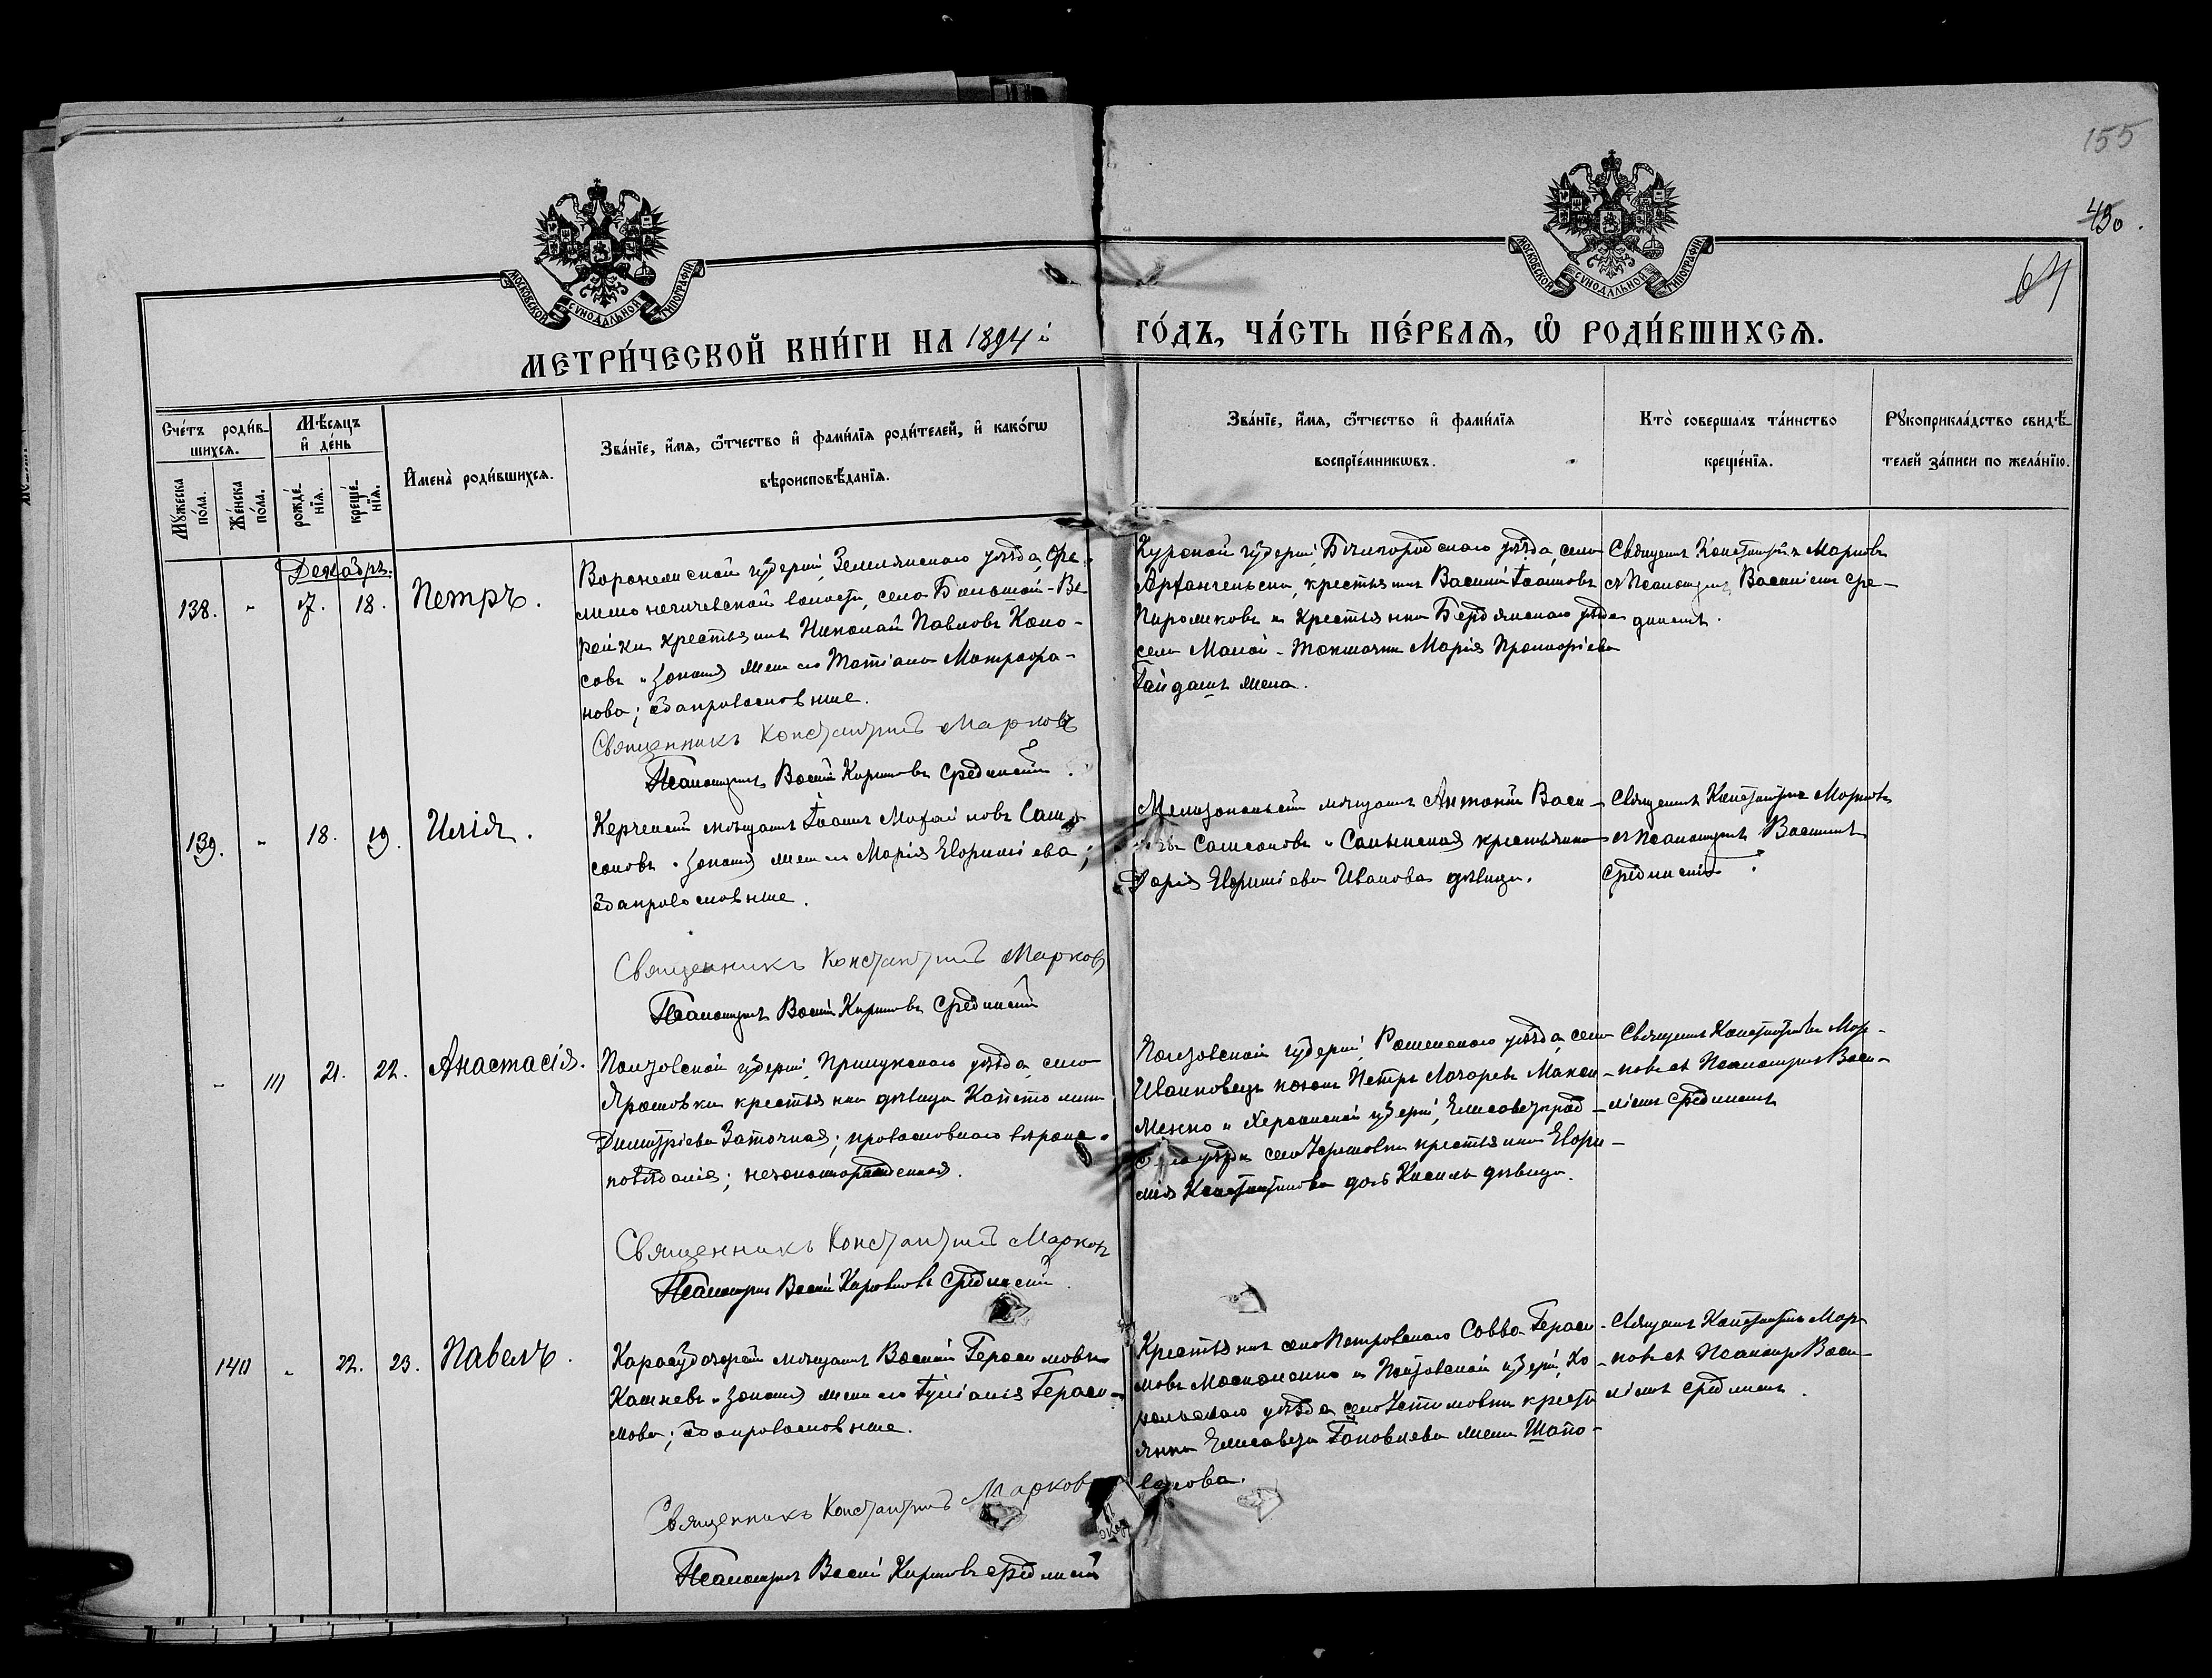 155
430.
64
МОСКОВСКОЙ СѴНОДАЛЬНОЙ ТИПОГРАФІИ
МОСКОВСКОЙ СѴНОДАЛЬНОЙ ТИПОГРАФІИ
МЕТРИ́ЧЕСКОЙ КНИ́ГИ НА 1894 й
ГО́ДЪ, ЧА́СТЬ ПЕ́РВАѦ, Ѡ҆ РОДИ́ВШИХСѦ.
Сче́тъ роди́в-
шихсѧ.
Мꙋ́жеска по́ла.
Же́нска по́ла.
Мѣ́сѧцъ
и҆ де́нь
рожде́-
нїѧ.
креще́-
нїѧ.
И҆мена̀ роди́вшихсѧ.
Зва́нїе, и҆́мѧ, ѻ҆́тчество и҆ фами́лїѧ роди́телей, и҆ како́гѡ
вѣроисповѣ́данїѧ.
Зва́нїе, и҆́мѧ, ѻ҆́тчество и҆ фами́лїѧ
воспрїе́мникѡвъ.
Кто̀ соверша́лъ та́инство
креще́нїѧ.
Рꙋкоприкла́дство свидѣ́-
телей за́писи по жела́нїю.
Декабрь.
138. - 17. 18. Петръ.
Воронежской губерніи, Землянскаго уѣзда,
волости, села Большой-Ве-
рейки крестьянинъ Николай Павловъ Коло-
совъ и законная жена его Татіана Митрофа-
нова; оба православные.
Священникъ Константинъ Марковъ
Псаломщикъ Василій Кириловъ Срединскій.
Курской губерніи, Бѣлгородскаго уѣзда, села
Архангельска, крестьянинъ Василій Іоанновъ
Пирожковъ и крестьянка Бердянскаго уѣзда
села Малой-Токмачки Марія Прокопіева
Гайдашъ жена.
Священникъ Константинъ Марковъ
съ Псаломщик. Василіемъ Сре-
динскимъ.
139. - 18. 19. Илія.
Керченскій мѣщанинъ Іоаннъ Михайловъ Сам-
соновъ и законная жена его Марія Евфиміева;
оба православные.
Священникъ Константинъ Марковъ
Псаломщикъ Василій Кириловъ Срединскій
Мелитопольскій мѣщанинъ Антоній Васи-
Самсоновъ и крестьянка
Дарія Евфиміева Иванова дѣвица.
Священникъ Константинъ Марковъ
съ Псаломщикомъ Василіемъ
Срединскимъ.
- 111 21. 22. Анастасія.
Полтавской губерніи, Прилукскаго уѣзда, села
Ярошовки крестьянка дѣвица Капитолина
Димитріева Заточная; православнаго вѣроис-
повѣданія; незаконнорожденная.
Священникъ Константинъ Марковъ
Псаломщикъ Василій Кириловъ Срединскій.
Полтавской губерніи, Роменскаго уѣзда, села
козакъ Петръ Лазаревъ Макси-
менко и Херсонской губерніи, Елисаветград-
скаго уѣзда села крестьянка Евфи-
мія Константинова дочь Кисиль дѣвица.
Священникъ Константинъ Мар-
ковъ съ Псаломщикомъ Васи-
ліемъ Срединскимъ
140 - 22. 23. Павелъ.
Карасубазарскій мѣщанинъ Василій Герасимовъ
Кашневъ и законная жена его Іуліанія Гераси-
мова; оба православные.
Священникъ Константинъ Марковъ
Псаломщикъ Василій Кириловъ Срединскій
Крестьянинъ села Петровскаго Савва Гераси-
мовъ Москаленко и Полтавской губерніи, Ко-
уѣзда села Устимовки кресть-
янка Елисавета Іаковлева жена Шапо-
валова.
Священникъ Константинъ Мар-
ковъ съ Псаломщ. Васи-
ліемъ Срединскимъ.